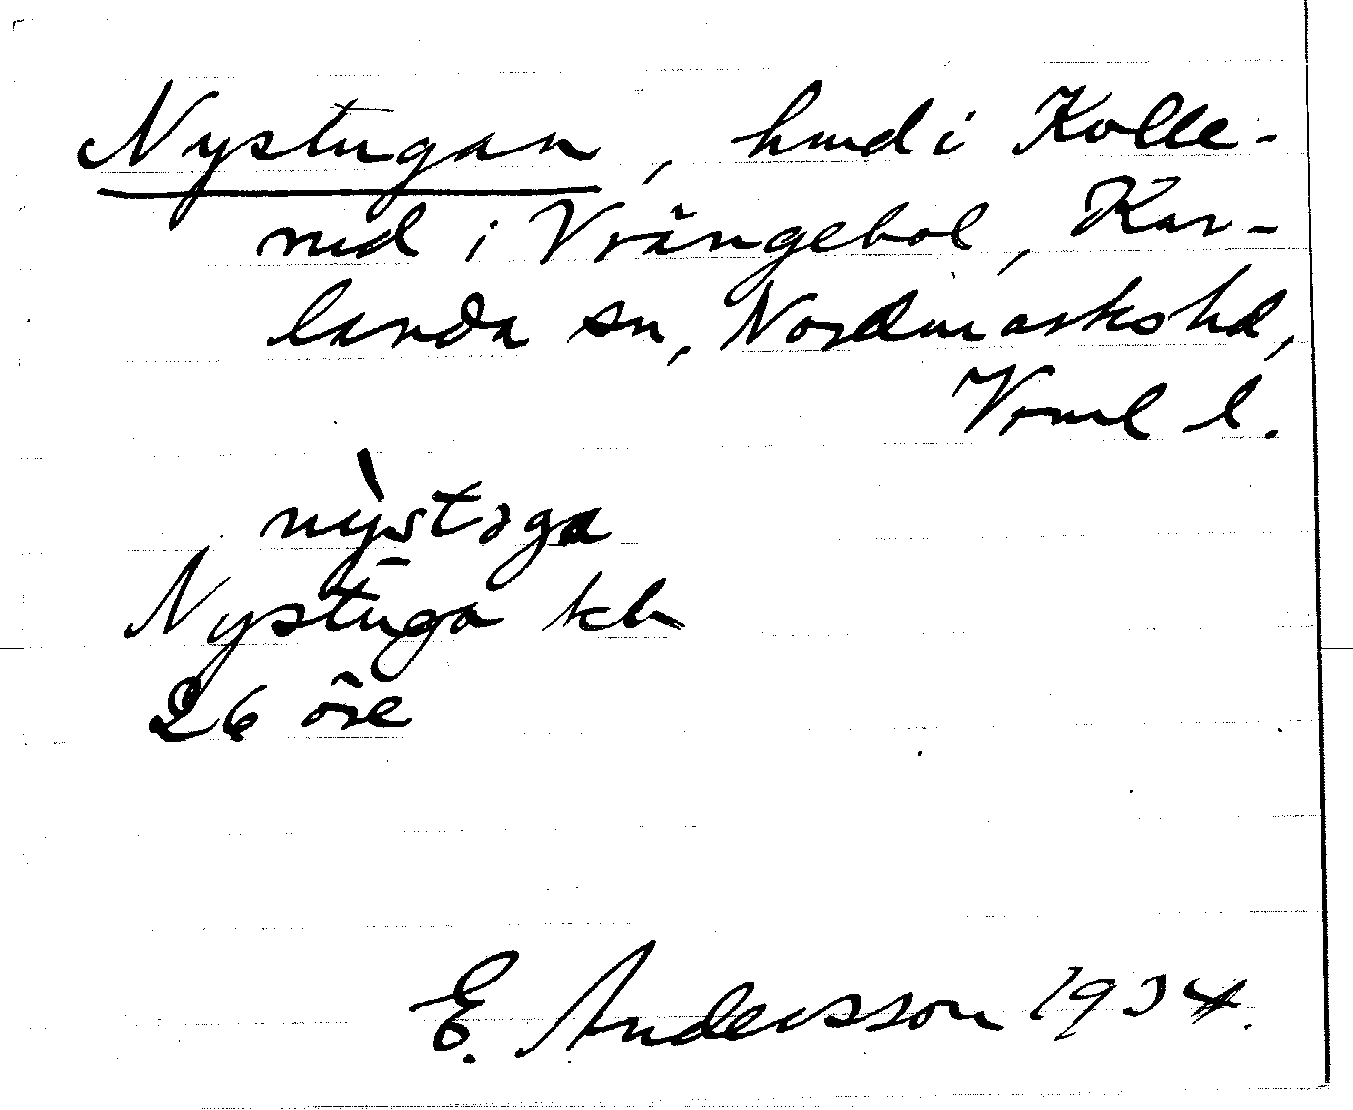 Nystugan, hmd i Kolle-
rud i Vrängebol, Kar-
landa sn, Nordmarks hd,
Vrml l.
nỳstoga
Nystuga kb
26 öre
E. Andersson 1934.